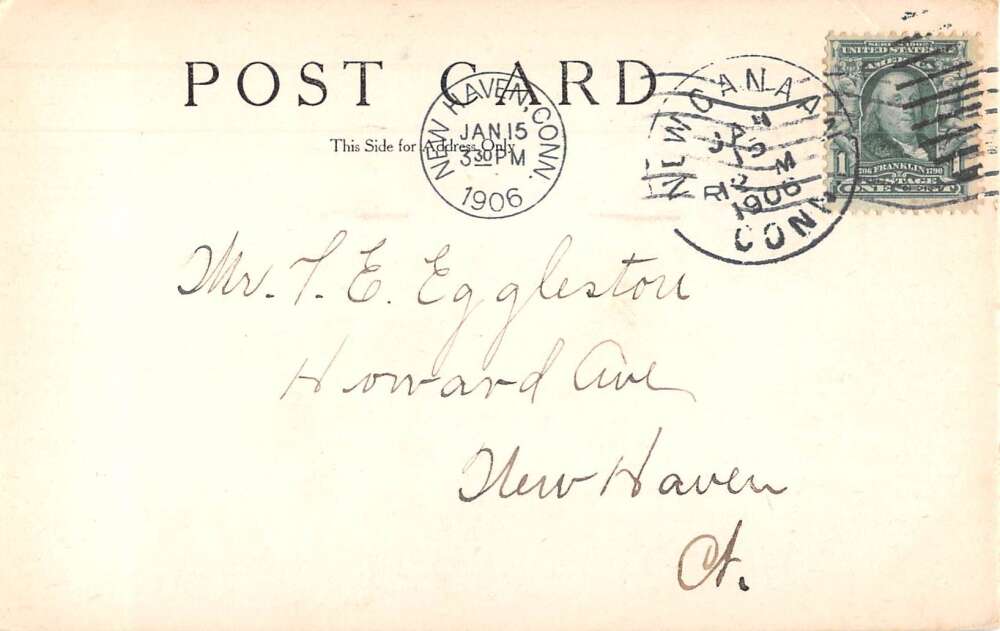 POST CARD
This Side for Address Only
NEW HAVEN, CONN.
JAN 15
3 30 PM
1906
NEW CANAAN
1906
CONN
SERIES 1902
UNITED STATES OF
AMERICA
1706 FRANKLIN 1790
POSTAGE
1
ONE CENT
Mr. T. E. Eggleston
Howard Ave
New Haven
Ct.